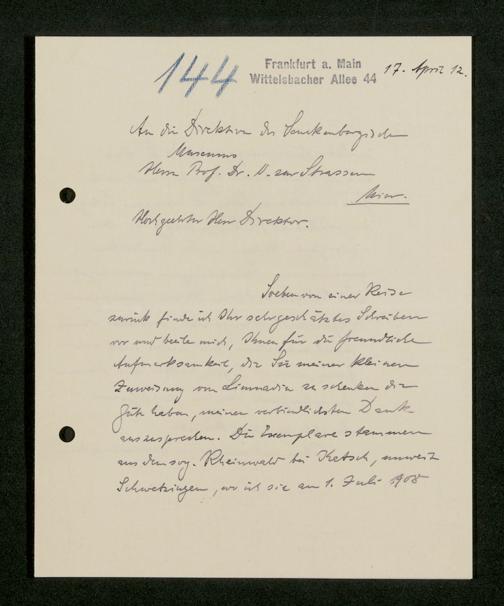 144
Frankfurt a. Main
Wittelsbacher Allee 44
17. April 12.
An die Direktion des Senckenbergischen
Museums
Herrn Prof. Dr. O. zur Strassen
hier.
Hochgeehrter Herr Direktor.
Soeben von einer Reise
zurück finde ich Ihr sehr geschätztes Schreiben
vor und beeile mich, Ihnen für die freundliche
Aufmerksamkeit, die Sie meiner kleinen
Zuweisung von Limnadia zu schenken die
Güte haben, meinen verbindlichsten Dank
auszusprechen. Die Exemplare stammen
aus dem sog. Rheinwald bei Ketsch, unweit
Schwetzingen, wo ich sie am 1. Juli 1908